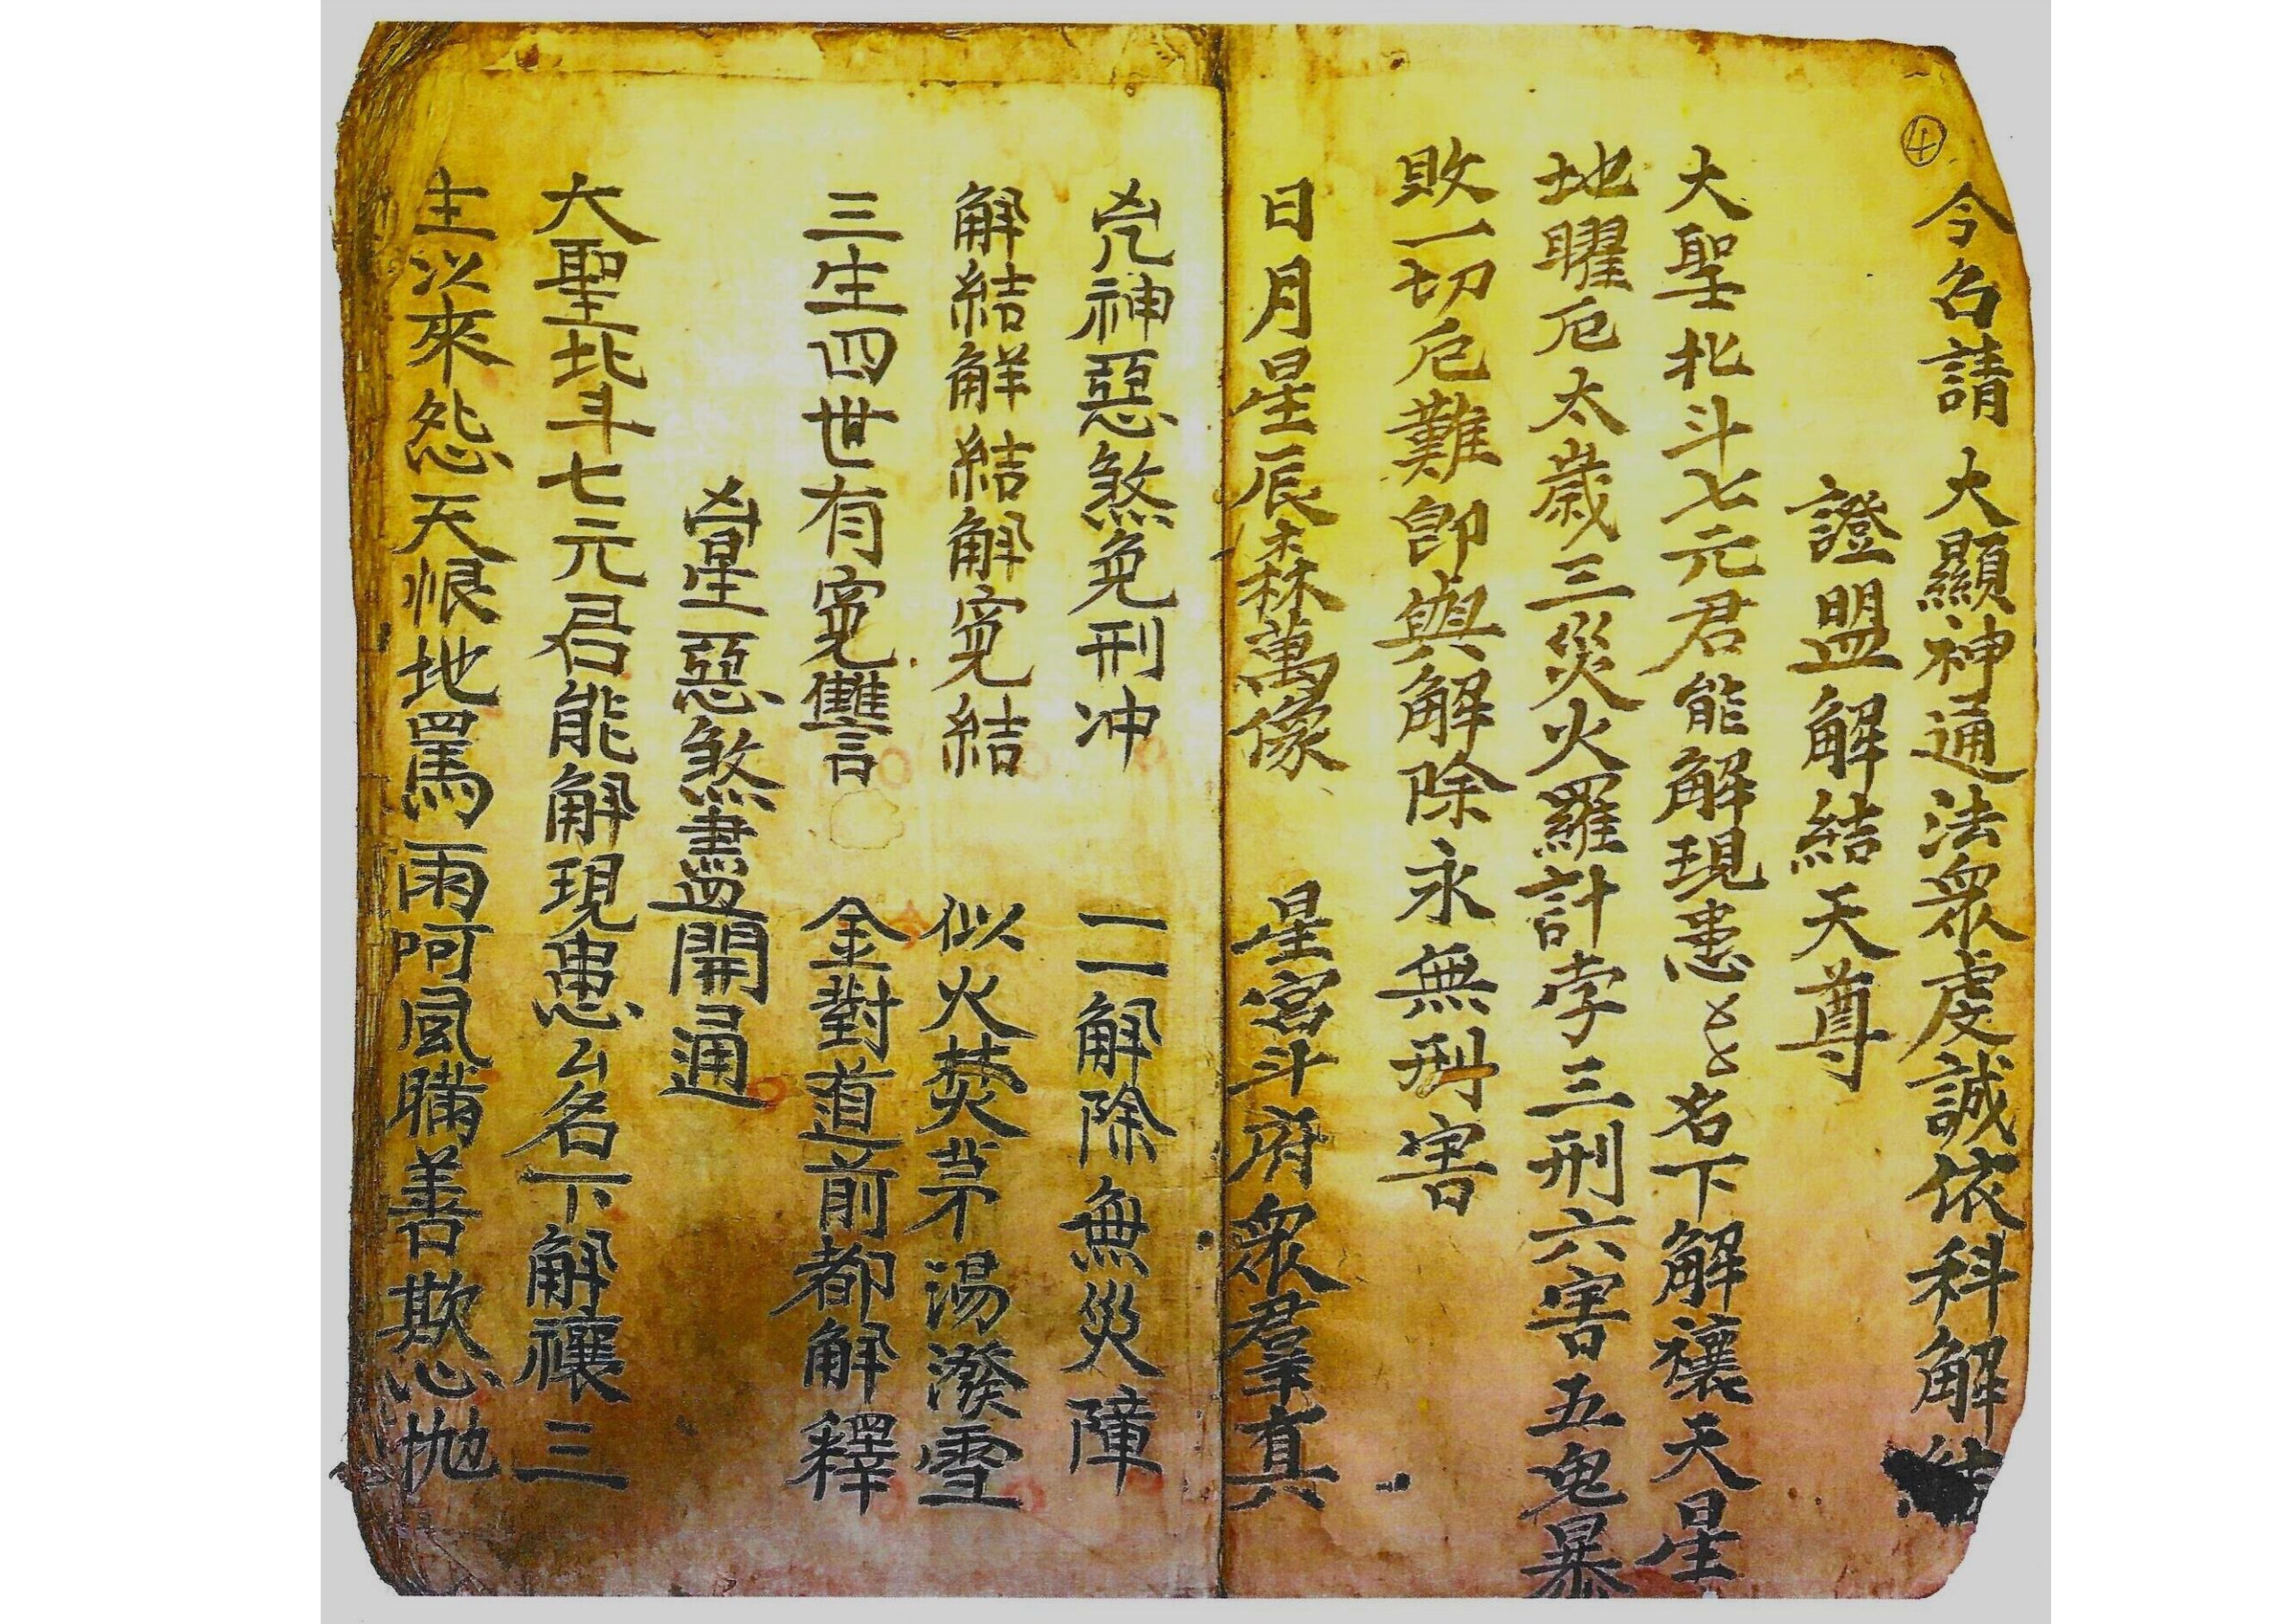 ④
今召請　大顯神通法眾虔誠依科解結
證盟解結天尊
大聖北斗七元君能解現患厶厶名下解禳天星
地曜厄太歲三災火羅計孛三刑六害五鬼暴
敗一切厄難即與解除永無刑害
日月星辰森萬像　星宮斗府眾羣真
兇神惡煞免刑冲　一一解除無災障
解結解結解寃結　似火焚茅湯潑雪
三生四世有寃讐　金對道前都解釋
凶星惡煞盡開通
大聖北斗七元君能解現患厶名下解禳三
主以來怨天恨地罵雨呵風瞞善欺心拋